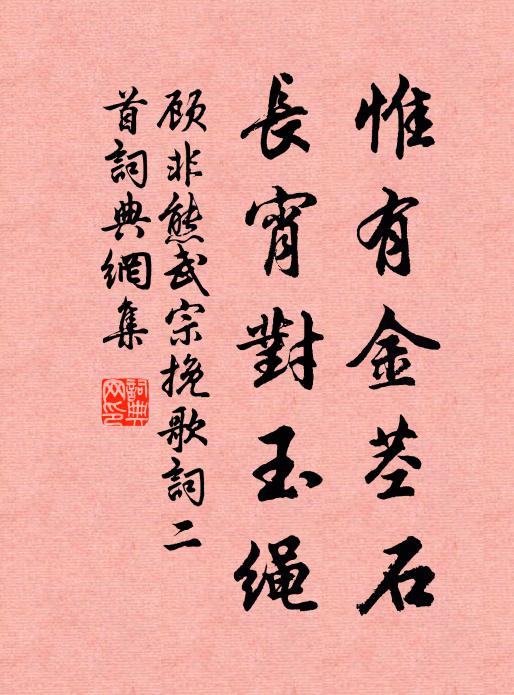 惟有金茎石
長宵對玉绳
顾非熊武宗挽歌詞二
首詞典網集
詞典网印